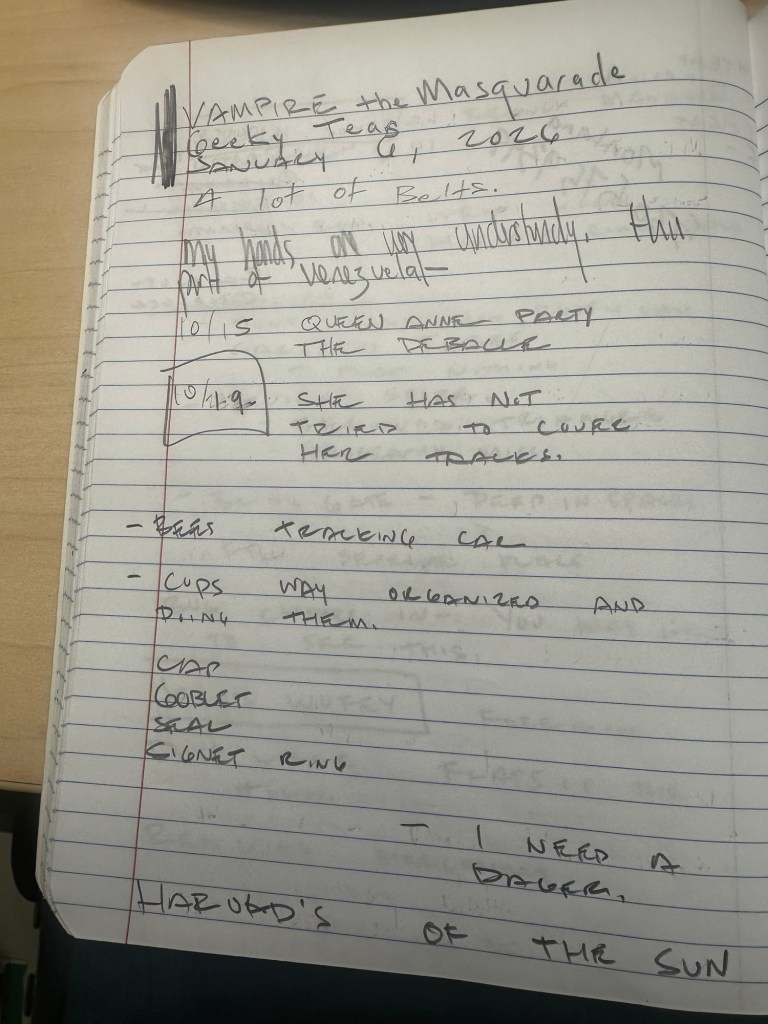 VAMPIRE the Masquarade
Geeky Teas
JANUARY 6, 2026
A lot of Belts.
My hands are very understurdy. this
part of Venezuela
10/15 QUEEN ANNE PARTY
THE DEBALLE
10/19 SHE HAS NOT
TRIED TO COVER
HER TRACKS.
- BEES TRACKING CAR
- CUPS WAY ORGANIZED AND
DOING THEM.
CUP
GOBLET
SEAL
SIGNET RING
I NEED A
DAGGER.
OF THE SUN